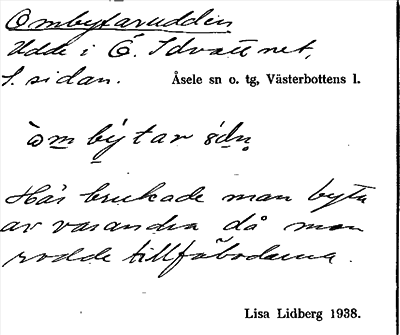 Ombytaruddin
Udde i Ö. Idvattnet,
S. sidan. Åsele sn o. tg, Västerbottens l.
Här brukade man byta
av varandra då man
rodde till fäbodarna.
Lisa Lidberg 1938.